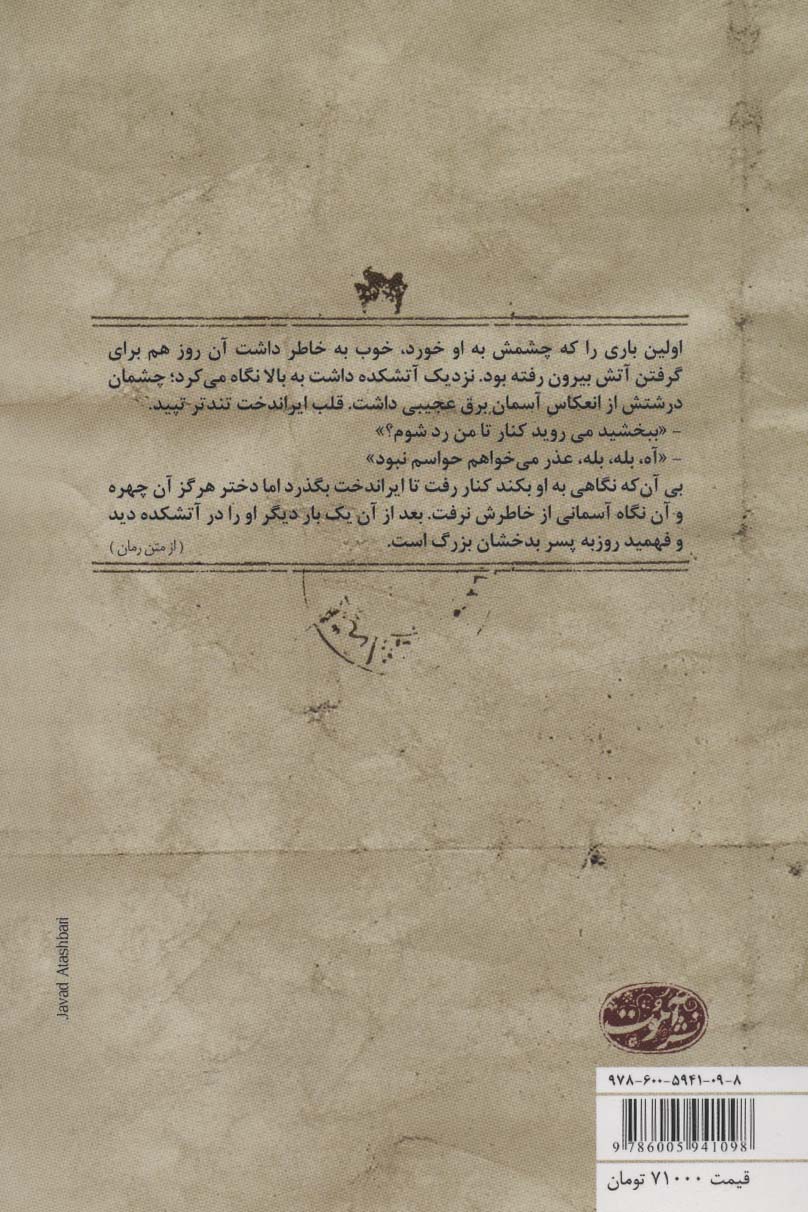 اولین باری را که چشمش به او خورد، خوب به خاطر داشت آن روز هم برای
گرفتن آتش بیرون رفته بود. نزدیک آتشکده داشت به بالا نگاه می‌کرد؛ چشمان
درشتش از انعکاس آسمان برق عجیبی داشت. قلب ایراندخت تندتر تپید.
- «ببخشید می روید کنار تا من رد شوم؟»
- «آه، بله، بله، عذر می‌خواهم حواسم نبود»
بی آن‌که نگاهی به او بکند کنار رفت تا ایراندخت بگذرد اما دختر هرگز آن چهره
و آن نگاه آسمانی از خاطرش نرفت. بعد از آن یک بار دیگر او را در آتشکده دید
و فهمید روزبه پسر بدخشان بزرگ است.
( از متن رمان )
Javad Atashbari
نشر آموت
۹۷۸-۶۰۰-۵۹۴۱-۰۹-۸
9 786005 941098
قیمت ۷۱۰۰۰ تومان